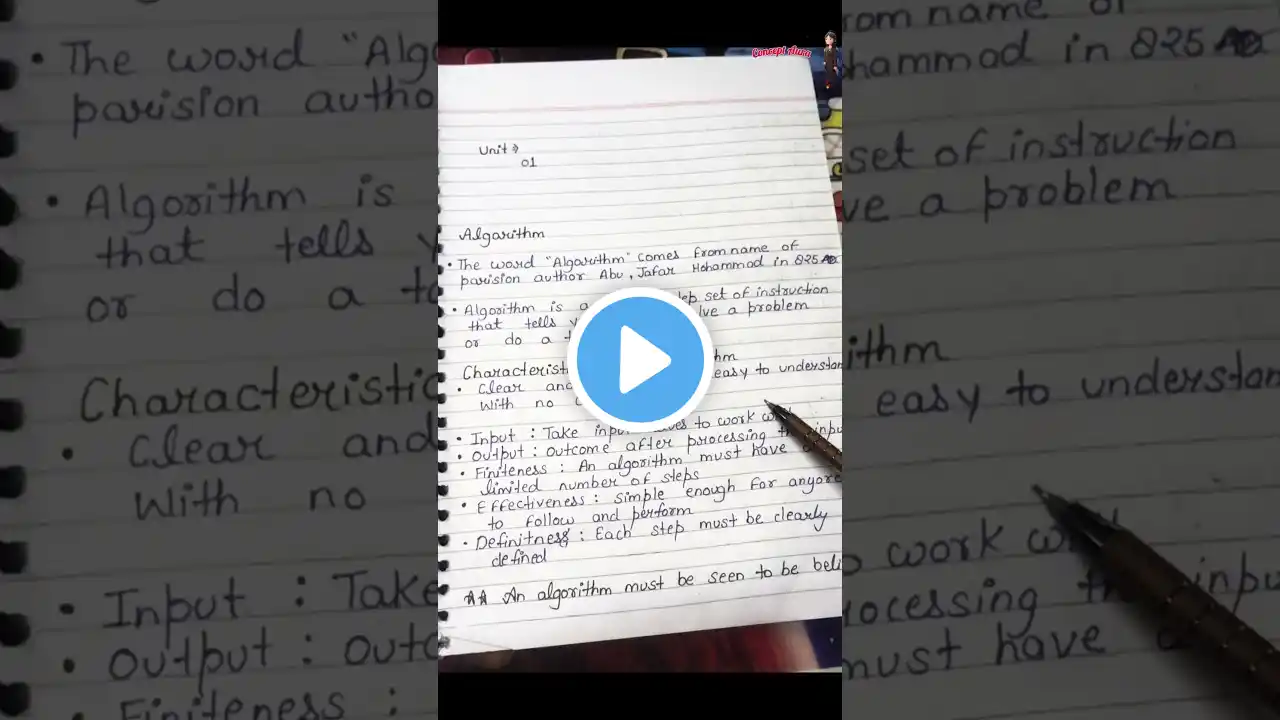 Concept
Unit →
01
Algarithm
• The word "Algorithm" comes from name of
parision author Abu, Jafar Mohammad in 825 AD
• Algorithm is a step set of instruction
that tells y lve a problem
or do a t
Characterist thm
• Clear and easy to understan
With no
• Input : Take inp ues to work w
• Output : Outcome after processing th inpu
• Finiteness : An algorithm must have a
limited number of steps
• Effectiveness : simple enough for anyone
to follow and perform
• Definitness : Each step must be clearly
defined
** An algorithm must be seen to be beli